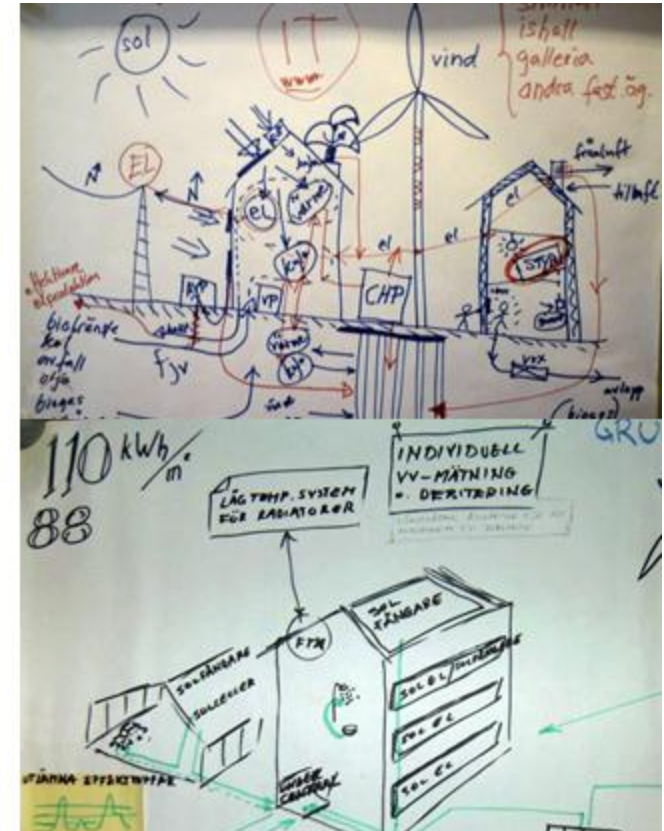 sol
IT
www
vind
ishall
galleria
andra fast.äg.
EL
frånluft
tilluft
el
EL
värme
kyla
el
el
STYR
CHP
VP
biobränsle
kol
avfall
olja
biogas
fjv
värme
kyla
vvx
avlopp
(biogas)
110 kWh/m²
88
LÅGTEMP. SYSTEM
FÖR RADIATORER
INDIVIDUELL
VV-MÄTNING
o. DEBITERING
GRU
SOL
FÅNGARE
FTX
SOLFÅNGARE
SOLCELLER
SOL EL/SOLFÅNGARE
SOL EL
SOL EL
UTJÄMNA EFFEKTTOPPAR
UNDER
CENTRAL